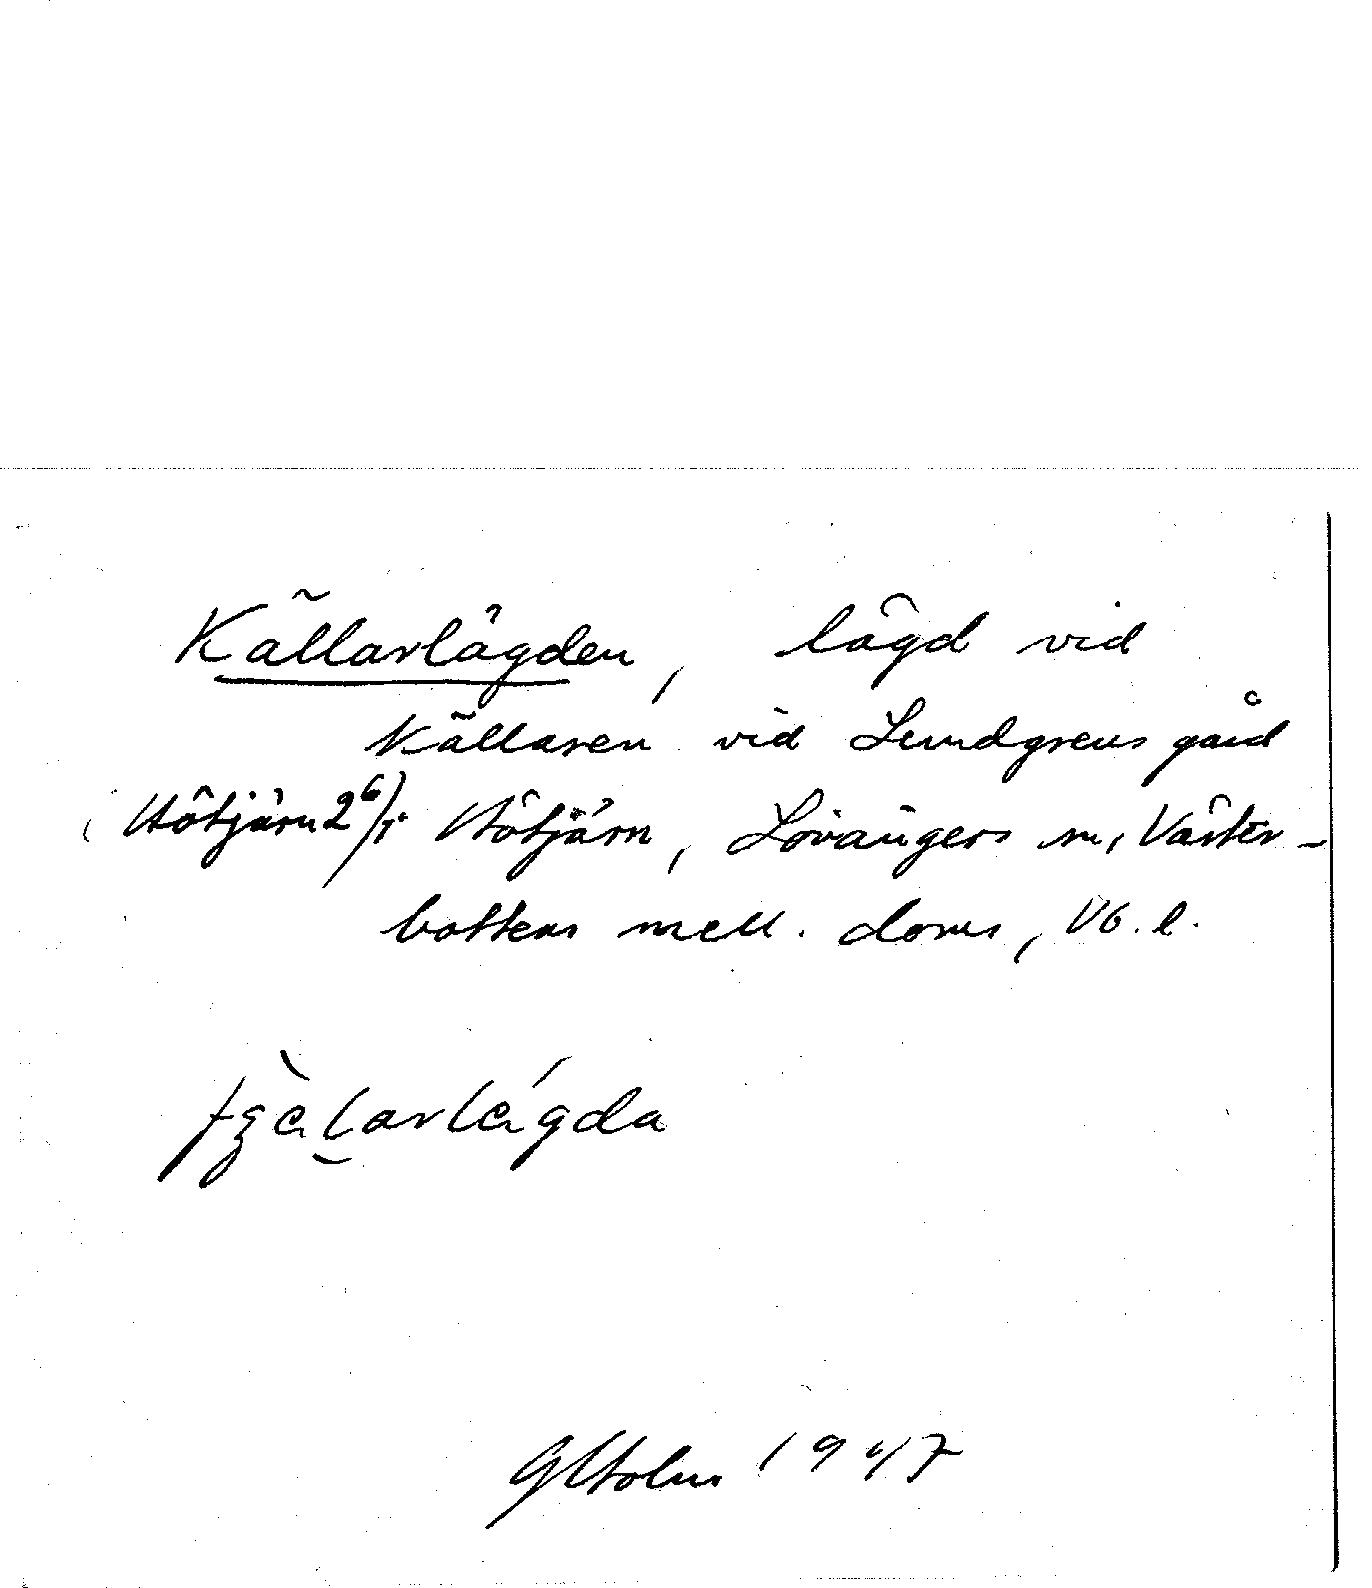 Källarlägden, lägd vid
källaren vid Lundgrens gård
(Hötjärn 2⁶/1) Hötjärn, Lövångers sn, Väster-
bottens mell. doms, Vb. l.
GHolm 1947